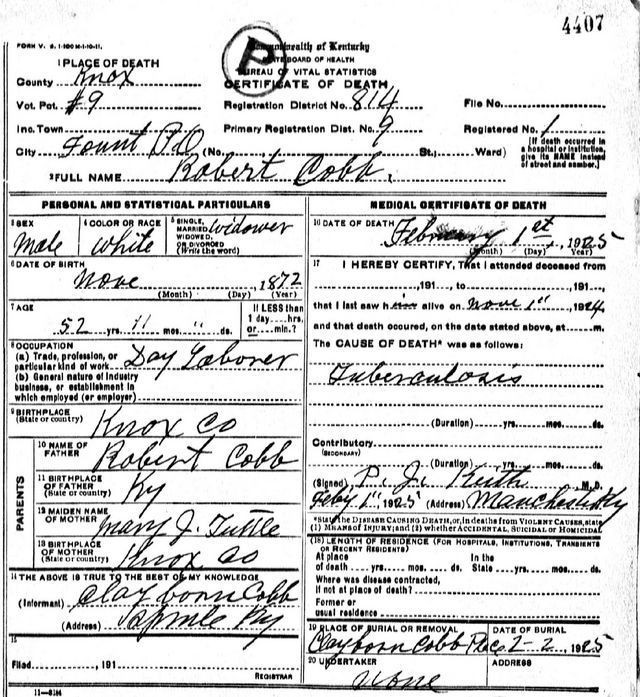 4407
FORM V. S. 1-100M-1-10-11.
Commonwealth of Kentucky
STATE BOARD OF HEALTH
BUREAU OF VITAL STATISTICS
CERTIFICATE OF DEATH
P
1 PLACE OF DEATH
County Knox
Vot. Pct. #9
Registration District No. 814
File No.
Inc. Town
Primary Registration Dist. No. 9
Registered No. 1
City Fount P.O (No. St.; Ward)
(If death occurred in a hospital or institution, give its NAME instead of street and number.)
2 FULL NAME Robert Cobb.
PERSONAL AND STATISTICAL PARTICULARS
3 SEX
Male
4 COLOR OR RACE
White
5 SINGLE, MARRIED, WIDOWED, OR DIVORCED (Write the word)
Widower
6 DATE OF BIRTH
Nove , 1872
(Month) (Day) (Year)
7 AGE
52 yrs. 11 mos. " ds.
If LESS than 1 day....hrs. or....min.?
8 OCCUPATION
(a) Trade, profession, or particular kind of work Day Laborer
(b) General nature of industry business, or establishment in which employed (or employer)
9 BIRTHPLACE
(State or country) Knox Co
PARENTS
10 NAME OF FATHER Robert Cobb
11 BIRTHPLACE OF FATHER (State or country) Ky
12 MAIDEN NAME OF MOTHER Mary J. Tuttle
13 BIRTHPLACE OF MOTHER (State or country) Knox Co
14 THE ABOVE IS TRUE TO THE BEST OF MY KNOWLEDGE
(Informant) Clayborn Cobb
(Address) Ky
15
Filed , 191
REGISTRAR
11-8184
MEDICAL CERTIFICATE OF DEATH
16 DATE OF DEATH
February 1st, 1925
(Month) (Day) (Year)
17 I HEREBY CERTIFY, That I attended deceased from
,191 , to ,191 ,
that I last saw him alive on Nove 1st, 1924,
and that death occured, on the date stated above, at m.
The CAUSE OF DEATH* was as follows:
Tuberculosis
(Duration) yrs. mos. ds.
Contributory
(SECONDARY)
(Duration) yrs. mos. ds.
(Signed) P. J. Keith M.D.
Feby 1st, 1925 (Address) Manchester Ky
*State the DISEASE CAUSING DEATH, or, in deaths from VIOLENT CAUSES, state
(1) MEANS OF INJURY; and (2) whether ACCIDENTAL, SUICIDAL or HOMICIDAL
(18) LENGTH OF RESIDENCE (FOR HOSPITALS, INSTITUTIONS, TRANSIENTS
OR RECENT RESIDENTS)
At place of death yrs. mos. ds. In the State yrs. mos. ds.
Where was disease contracted,
If not at place of death?
Former or
usual residence
19 PLACE OF BURIAL OR REMOVAL
Clayborn Cobb Place
DATE OF BURIAL
2-2, 1925
20 UNDERTAKER
None
ADDRESS